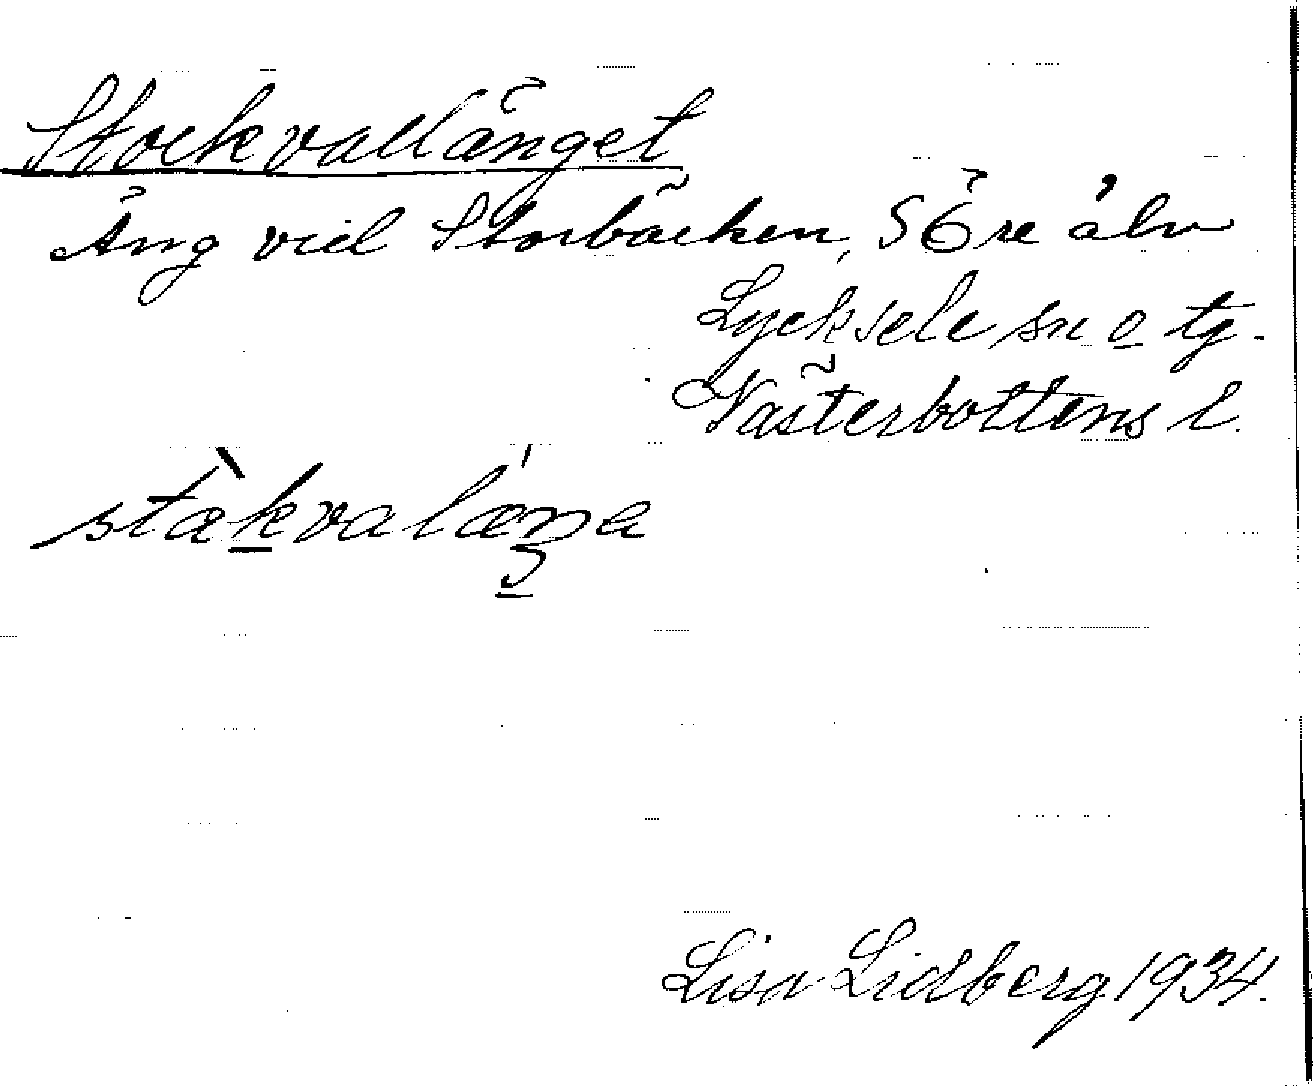 Stockvallänget
Äng vid Storbäcken, S Öre älv
Lycksele sn o tg.
Västerbottens l.
Lisa Lidberg 1934.